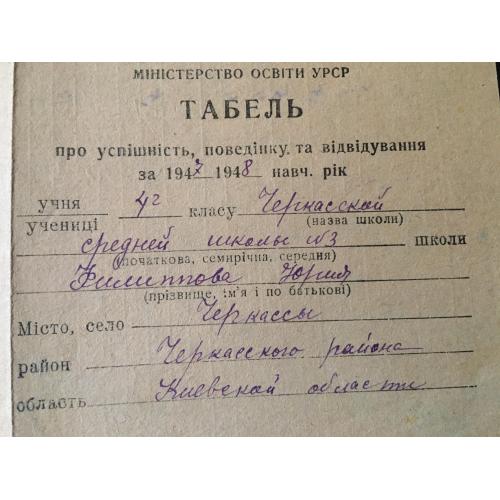 МІНІСТЕРСТВО ОСВІТИ УРСР
ТАБЕЛЬ
про успішність, поведінку та відвідування
за 1947 1948 навч. рік
учня 4г класу Черкасской
учениці (назва школи)
средней школы №3 школи
(початкова, семирічна, середня)
Филиппова Юрия
(прізвище, ім'я і по батькові)
Місто, село Черкассы
район Черкасского района
область Киевской области